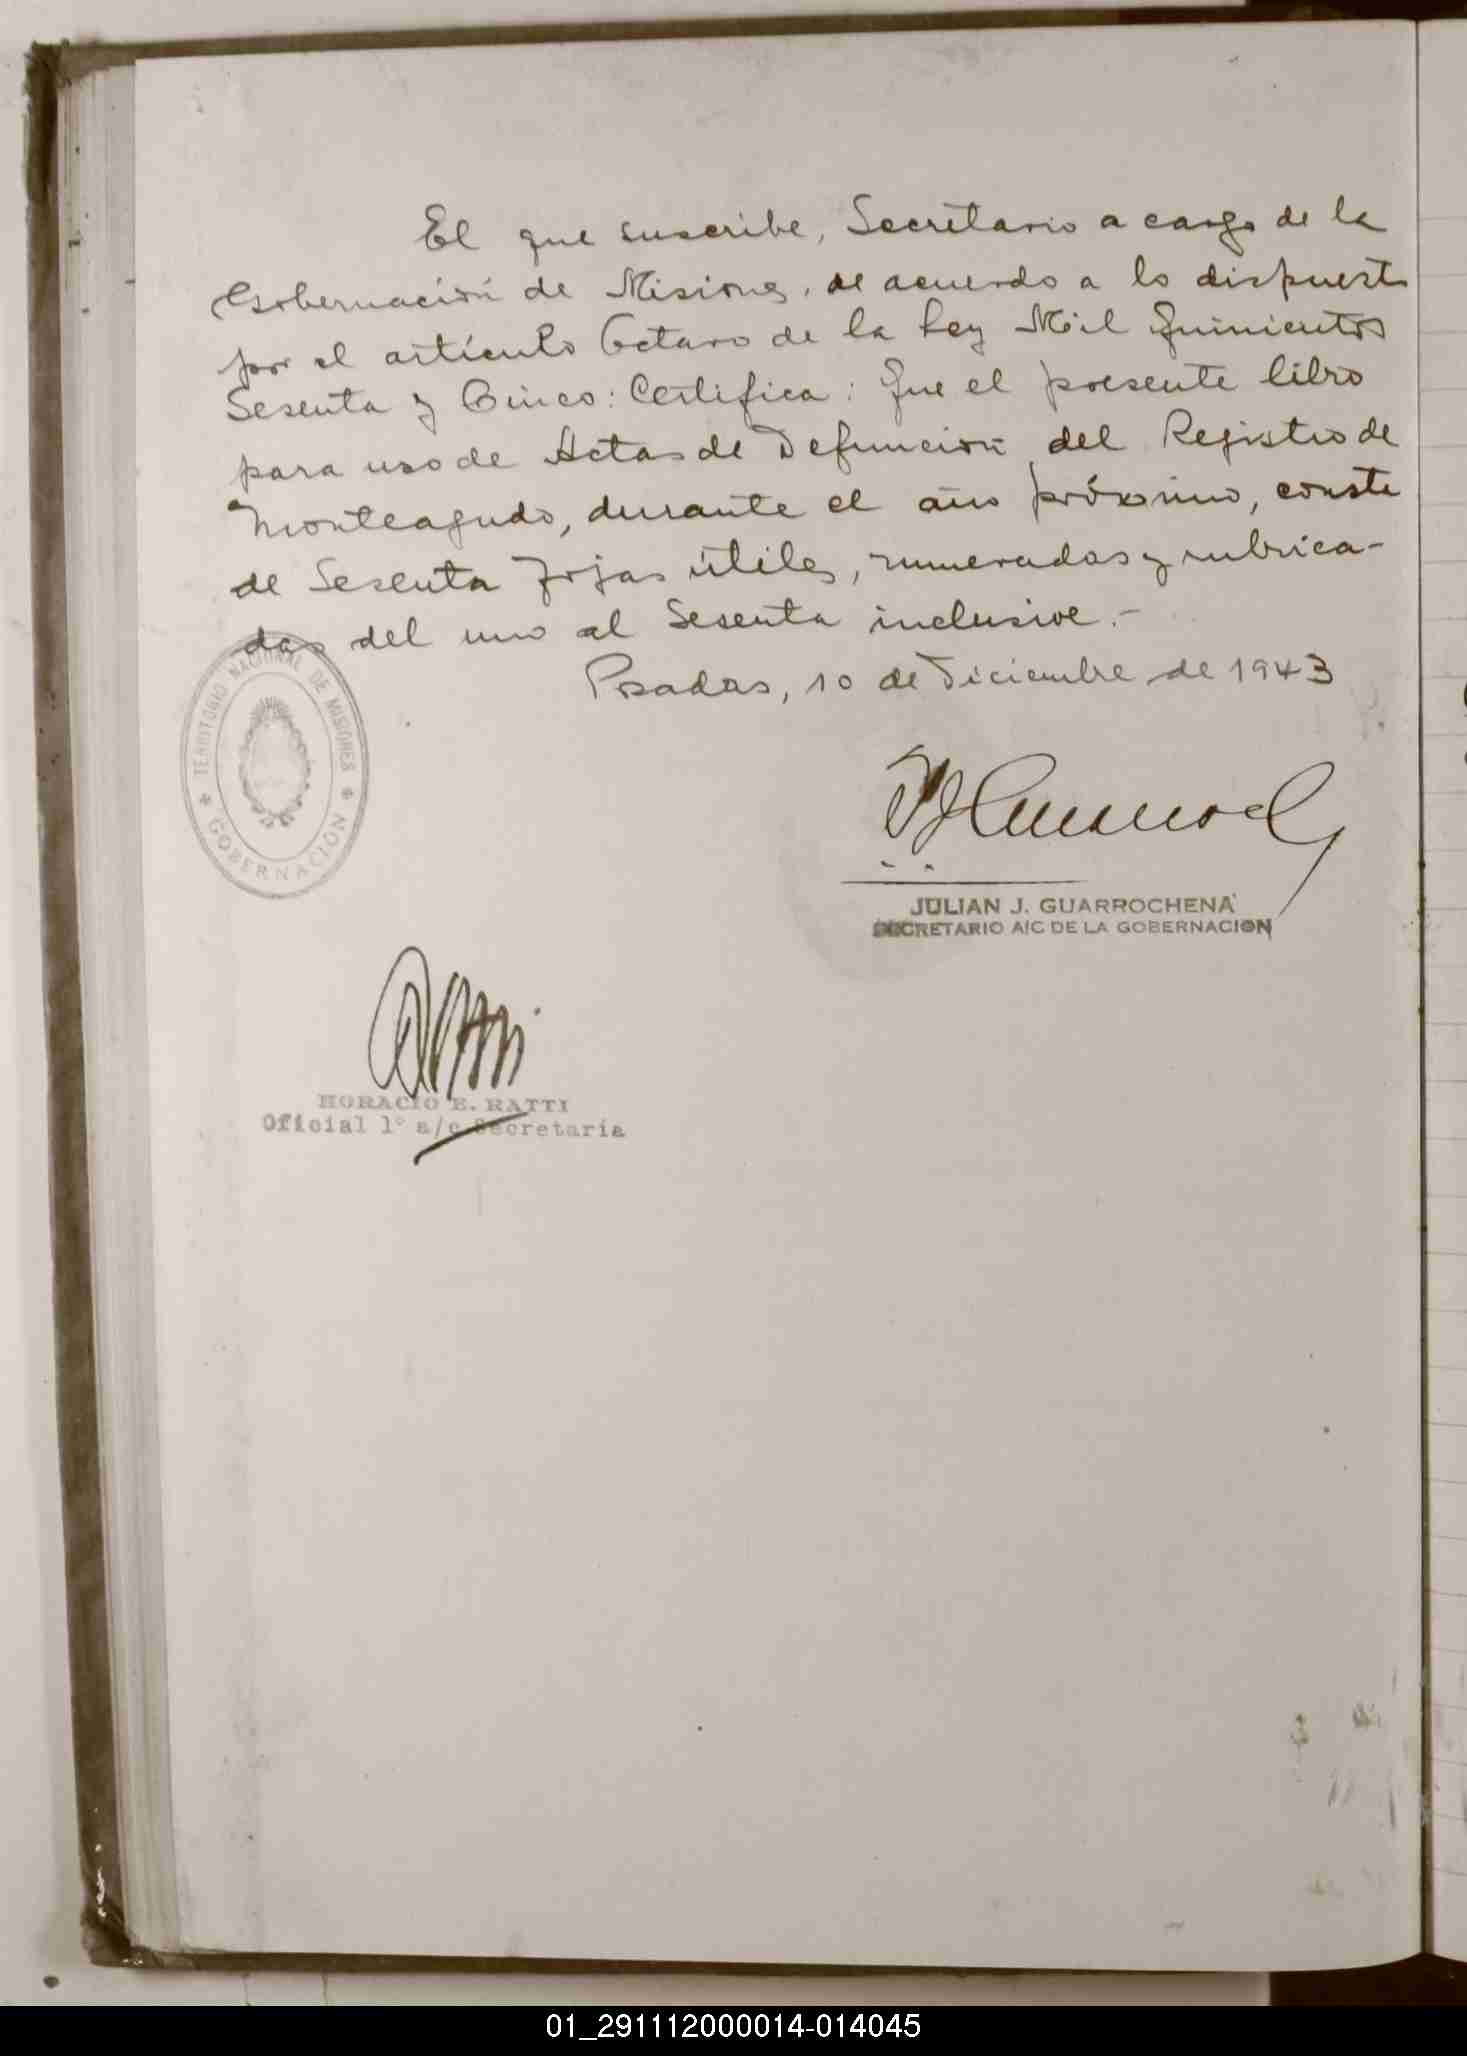 El que suscribe, Secretario a cargo de la
Gobernación de Misiones, de acuerdo a lo dispuesto
por el artículo Octavo de la Ley Mil Quinientos
Sesenta y Cinco: Certifica: Que el presente libro
para uso de Actas de Defunción del Registro de
Monteagudo, durante el año próximo, consta
de Sesenta fojas útiles, numeradas y rubrica-
das del uno al Sesenta inclusive.-
Posadas, 10 de Diciembre de 1943
TERRITORIO NACIONAL DE MISIONES
GOBERNACION
JULIAN J. GUARROCHENA
SECRETARIO A/C DE LA GOBERNACION
HORACIO E. RATTI
Oficial 1º a/c Secretaría
01_291112000014-014045